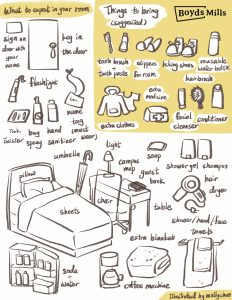 What to expect in your room
sign on
door with
your
name
key in
the door
flashlight
name
tag
(must
wear)
Tick
twister
bug
spray
hand
sanitizer
Things to bring
(suggested)
Boyds Mills
tooth brush
tooth paste
slippers
for room
hiking shoes
reusable
water bottle
hairbrush
extra
medicine
extra clothes
facial
cleanser
conditioner
umbrella
light
campus
map
guest
book
soap
shower gel
shampoo
pillow
sheets
chair
table
hair
dryer
shower/hand/face
towels
extra blanket
soda
water
coffee machine
Illustrated by